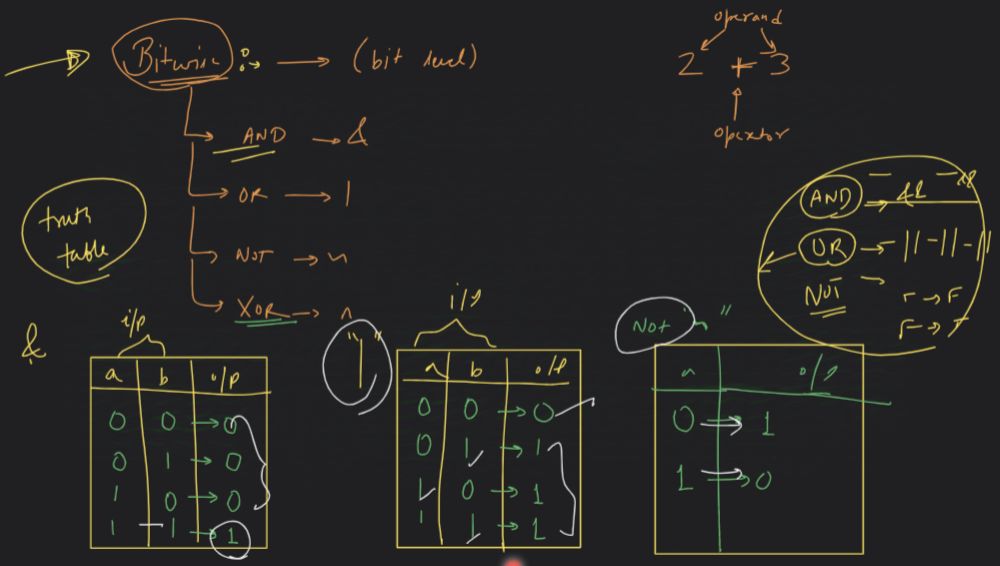 Bitwise : → (bit level)
AND → &
OR → |
NOT → ~
XOR → ^
operand
2 + 3
operator
truth
table
AND → &&
OR → || - || - ||
NOT →
F → T
&
i/p
a b o/p
0 0 → 0
0 1 → 0
1 0 → 0
1 1 → 1
"|"
i/p
a b o/p
0 0 → 0
0 1 → 1
1 0 → 1
1 1 → 1
Not "~"
a o/p
0 → 1
1 → 0